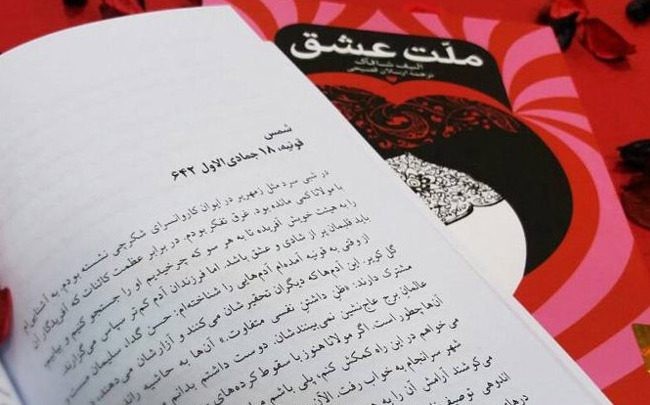 ملّت عشق
الیف شافاک
ترجمهٔ ارسلان فصیحی
شمس
قونیه، ۱۸ جمادی‌الاول ۶۴۲
در شبی سرد مثل زمهریر در ایوان کاروانسرای شکرچی نشسته بودم. به آشنایی‌ام
با مولانا کمی مانده بود. غرق تفکر بودم. در برابر عظمت کائنات که آفریدگار آن
را به هیئت خویش آفریده تا به هر سو که چرخیدیم او را جستجو کنیم و بیابیم
باید قلبمان پر از شادی و عشق باشد. اما فرزندان آدم کم‌تر سپاس می‌گزارند.
از وقتی به قونیه آمده‌ام آدم‌هایی را شناخته‌ام: حسن گدا، سلیمان مست و
گل کویر. این آدم‌ها که دیگران تحقیرشان می‌کنند و آزارشان می‌دهند،
مشترک دارند: «ظن داشتن نفسی متفاوت.» آن‌ها به حاشیه
عالمانِ برج عاج‌نشین نمی‌بینندشان. دوست داشتم بدانم
آن‌ها چطور است. اگر مولانا هنوز با سقوط کرده‌های
می‌خواهم در این راه کمکش کنم، پلی باشم
شهر سرانجام به خواب رفت. الآن
می‌کوشند آرامش آن را به هم
اندوهی توصیف